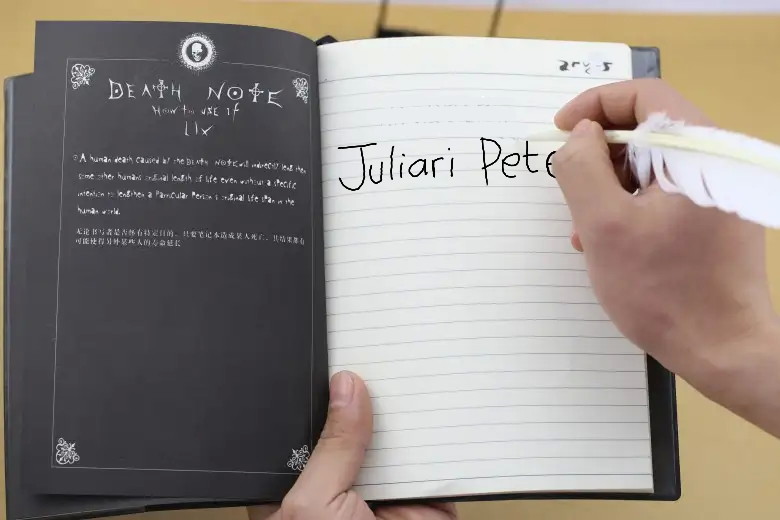 DEATH NOTE
How to USE It
LIX
A human death caused by the DEATH NOTE will indirectly lengthen
some other human's original length of life even without a specific
intention to lengthen a Particular Person's original life span in the
human world.
无论书写者是否怀有特定目的，只要笔记本造成某人死亡，其结果都有
可能使得另外某些人的寿命延长
Juliari Pete